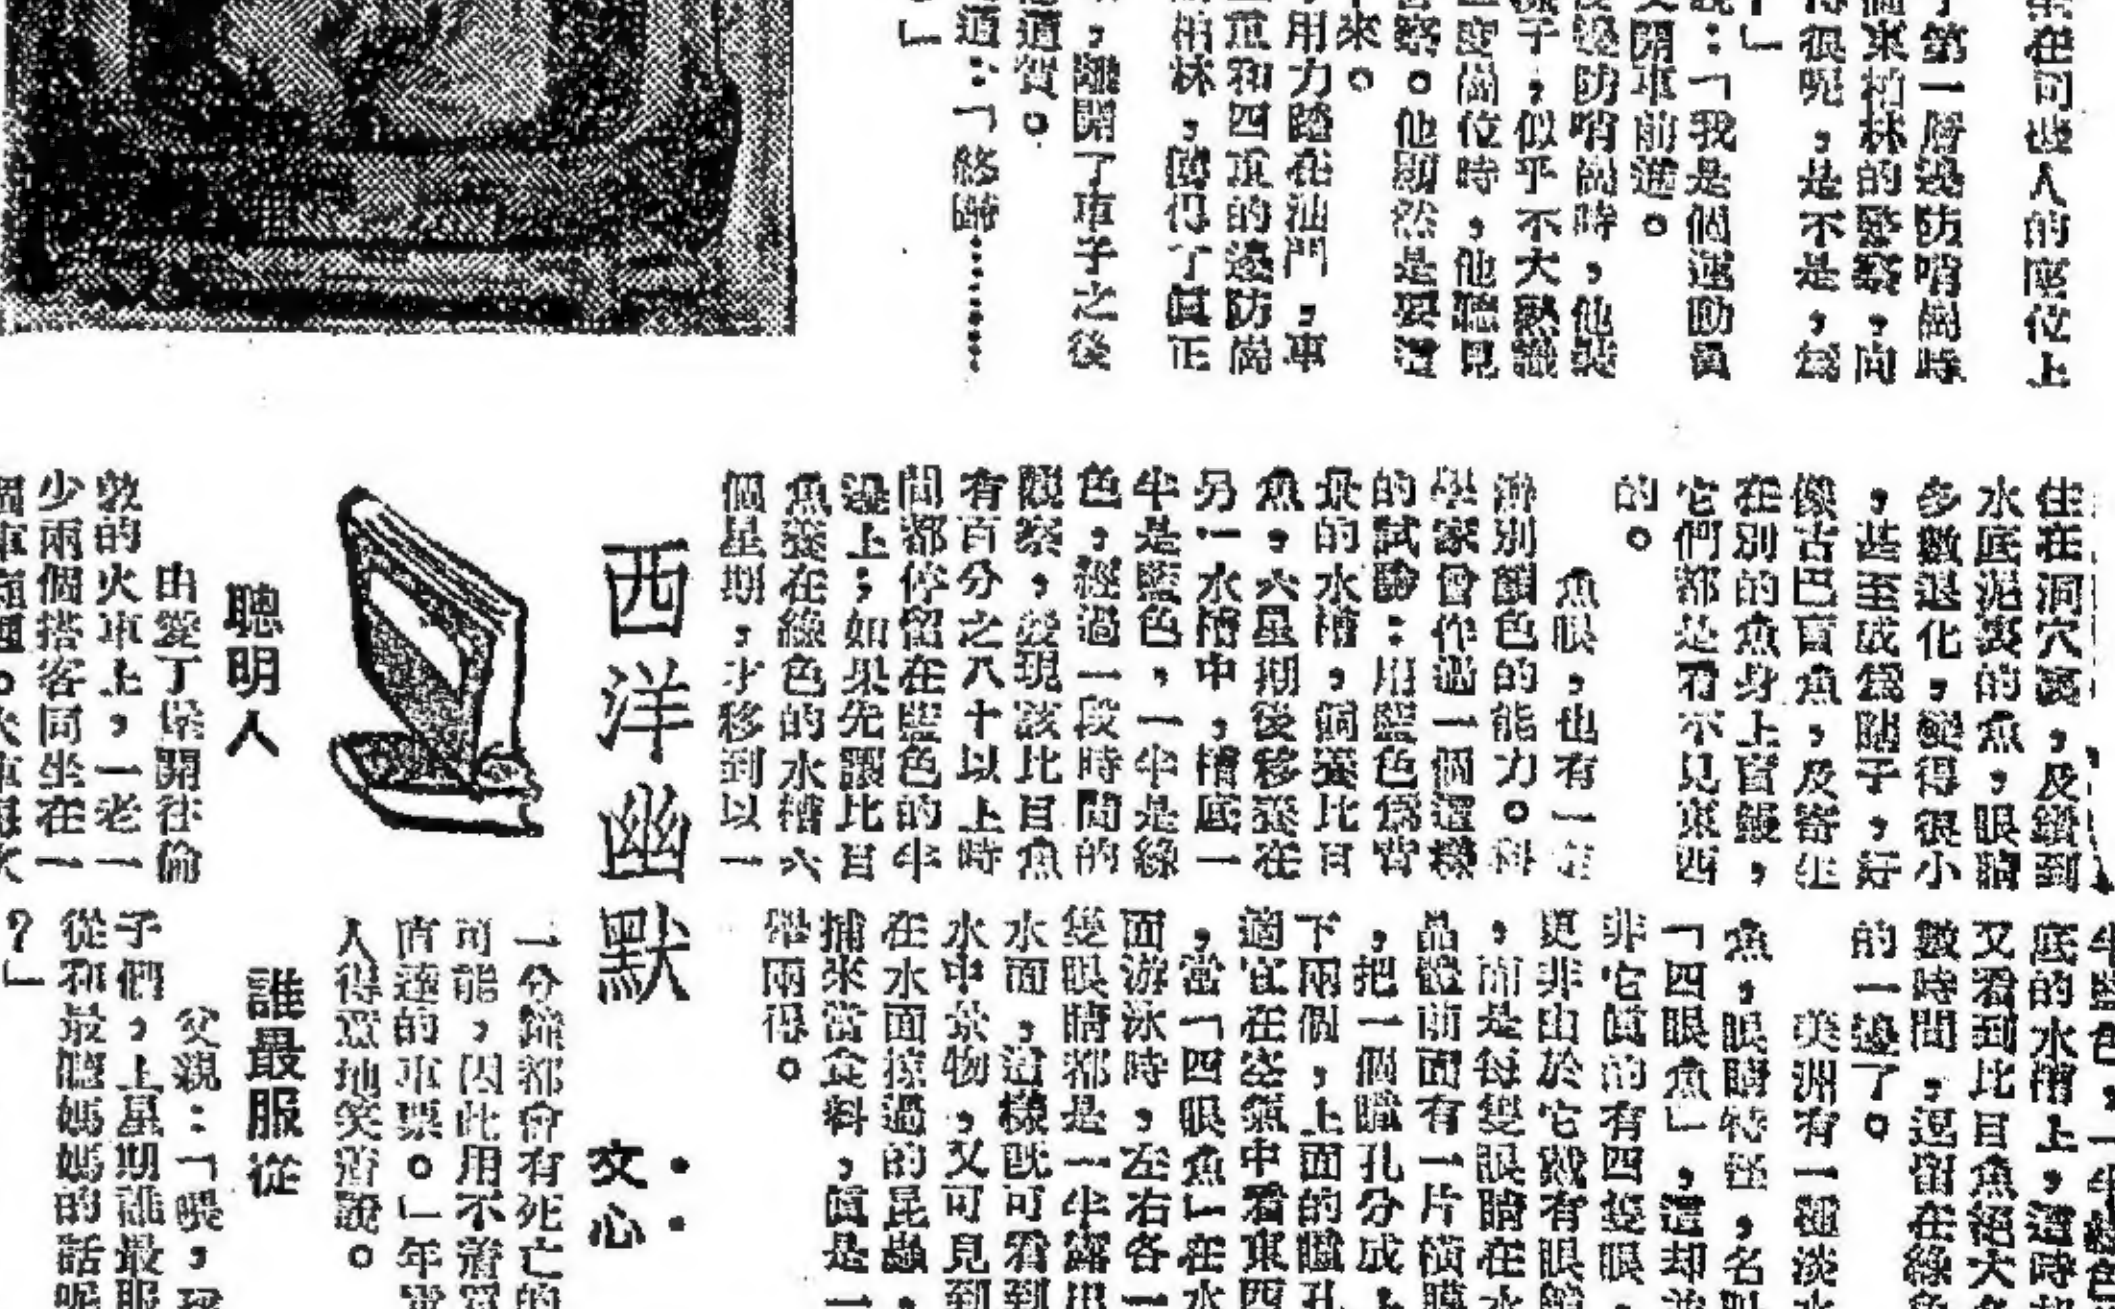 業在司機人的座位上
了第一層邊防哨崗時
個東柏林的警察,向
得很呢,是不是,為
」
說:「我是個運動員
又開車前進。
後邊防哨崗時,他裝
樣子,似乎不大熟識
座崗位時,他聽見
警察。他顯然是要
來。
用力踏在油門,車
重和四重的邊防崗
柏林,獲得了眞正
,離開了車子之後
道賀。
道:「終歸………
」
住在洞穴裏,及鑽到
水底泥裏的魚,眼睛
多數退化,變得很小
,甚至成為瞎子,好
像古巴盲魚,及寄生
在別的魚身上盲鰻,
它們都是看不見東西
的。
魚眼,也有一定
辨別顏色的能力。科
學家曾作過一個這樣
的試驗:用藍色為背
景的水槽,飼養比目
魚。六星期後移養在
另一水槽中,槽底一
半是藍色,一半是綠
色,經過一段時間的
觀察,發現該比目魚
有百分之八十以上時
間都停留在藍色的半
邊上;如果先讓比目
魚養在綠色的水槽六
個星期,才移到以一
半藍色,一半綠色
底的水槽上,這時
又看到比目魚絕大
數時間,逗留在綠色
的一邊了。
美洲有一種淡水
魚,眼睛特怪,名叫
「四眼魚」,這却並
非它眞的有四隻眼,
更非由於它戴有眼鏡
,而是每隻眼睛在水
晶體前面有一片橫膜
,把一個瞳孔分成上
下兩個,上面的瞳孔
適宜在空氣中看東西
,當「四眼魚」在水
面游泳時,左右各一
隻眼睛都是一半露出
水面,這樣既可看到
水中景物,又可見到
在水面掠過的昆蟲,
捕來當食料,眞是一
舉兩得。
西洋幽默
文心
聰明人
由愛丁堡開往倫
敦的火車上,一老一
少兩個搭客同坐在一
個車廂裡。火車每次
一分鐘都會有死亡的
可能,因此用不着買
直達的車票。」年
人得意地笑着說。
誰最服從
父親:「喂,孩
子們,上星期誰最服
從和最聽媽媽的話呢
?」